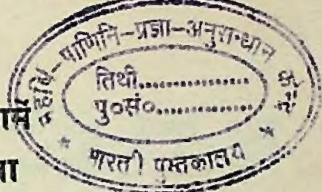 पाणिनि-प्रज्ञा-अनुसन्धान
तिथी.............
पु०सं०.............
* भारती पुस्तकालय *